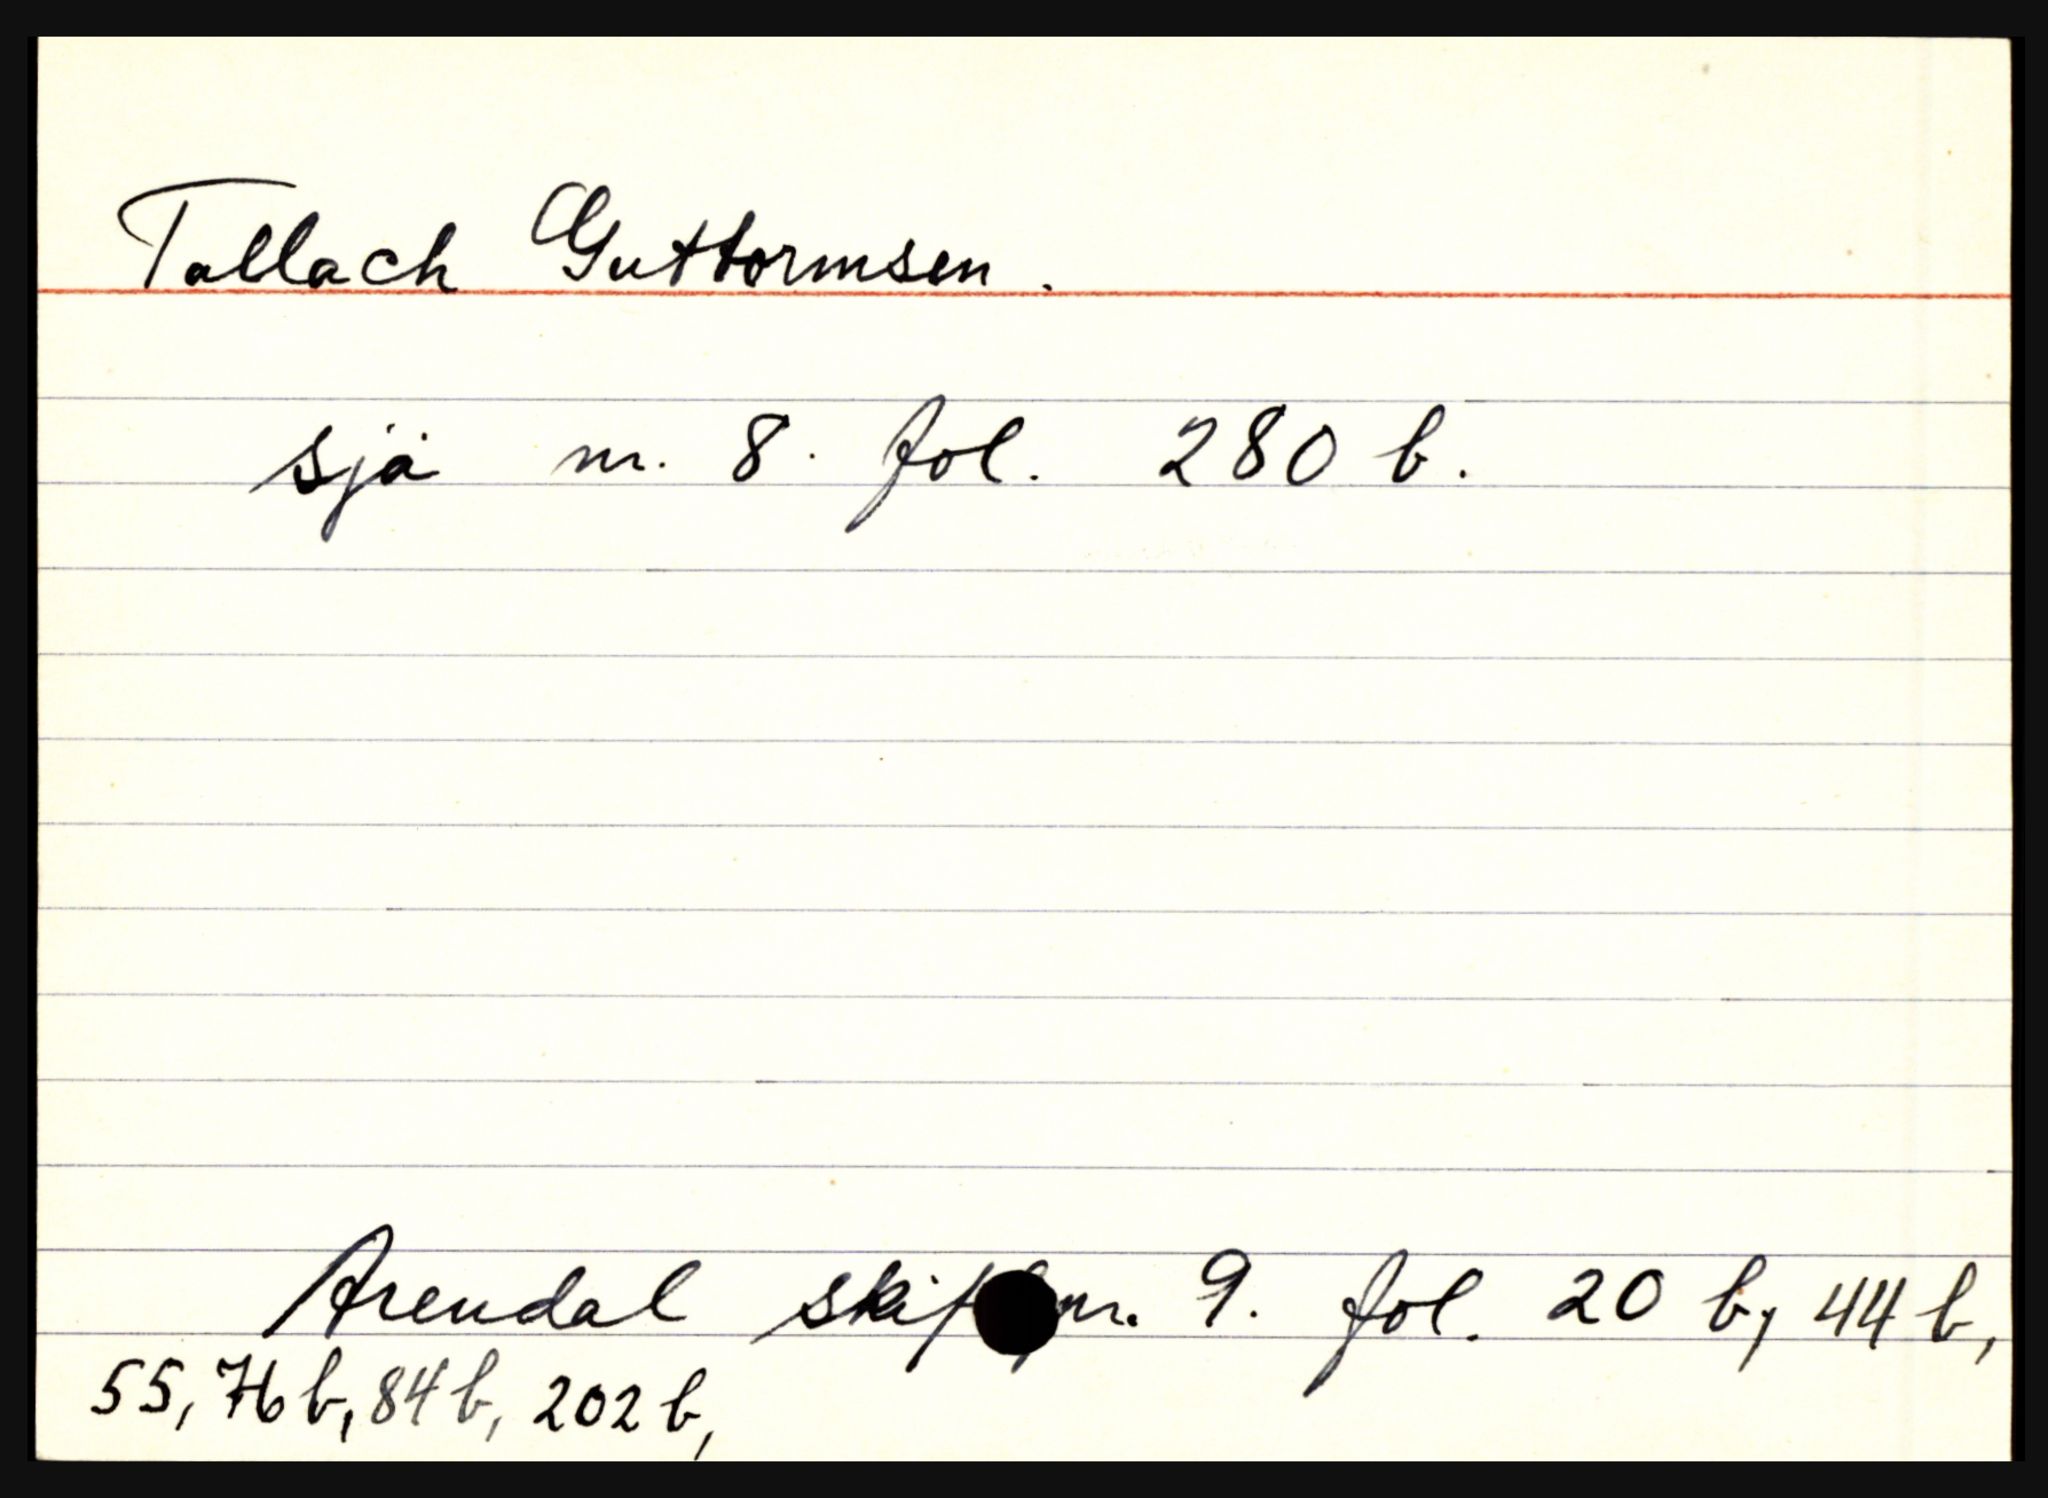 Tallach Guttormsen.
sjå nr. 8. fol. 280 b.
Arendal skif nr. 9. fol. 20 b, 44 b,
55, 76 b, 84 b, 202 b,